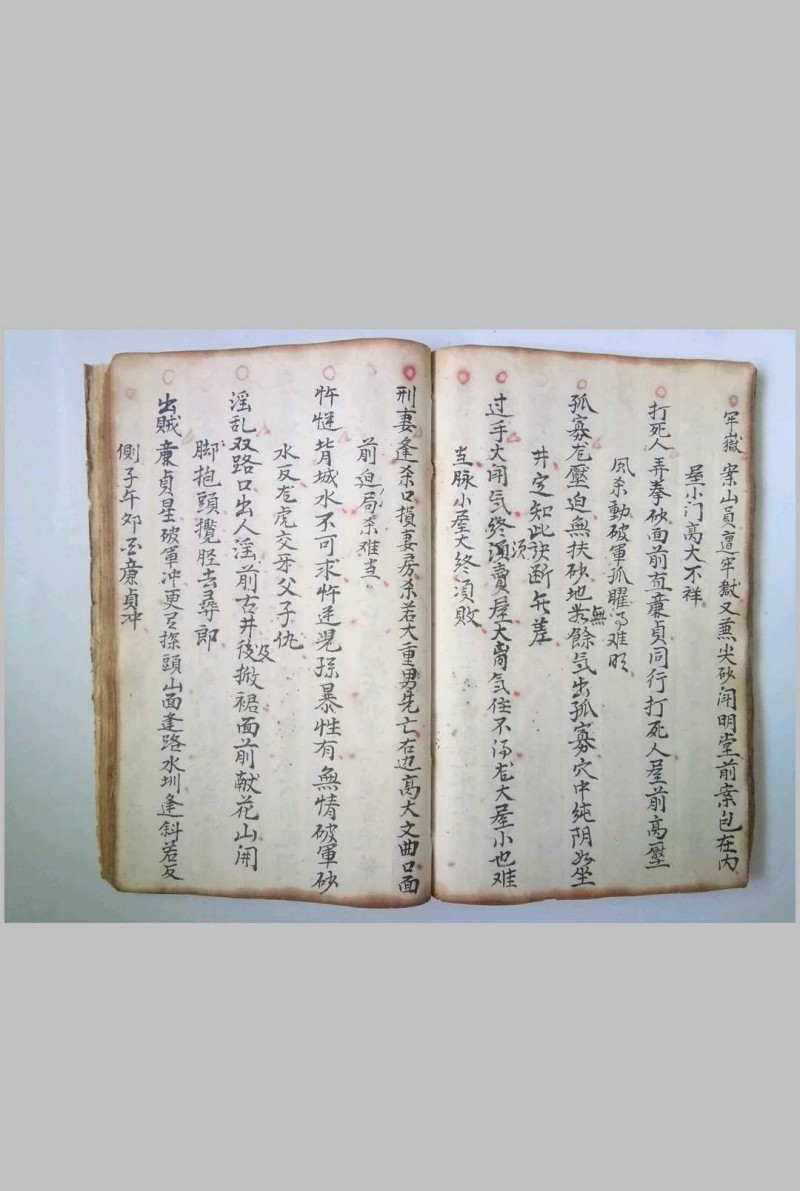 牢嶽 案山員亶牢獄又兼尖砂開明堂前案包在内
屋小门高大不祥
打死人 弄拳砂面前直廉貞同行打死人屋前高壓
風杀動破軍孤曜無难
孤寡龙壓迫無扶砂地劣餘气出孤寡穴中純阴如坐
井定知此訣断无差
过手大開气終須賣屋大商气住不淂龙大屋小也难
当脉小屋大終須敗
刑妻逢杀口損妻房杀若大重男先亡右边高大文曲口面
前迫局杀难当
忤逆背城水不可求忤逆児孫暴性有無情破軍砂
水反龙虎交牙父子仇
淫乱双路口出人淫前古井及後掀裙面前献花山開
脚抱頭攬脛去尋郎
出賊廉貞星破軍冲更有探頭山面逢路水圳逢斜若反
側子午夘酉廉貞冲